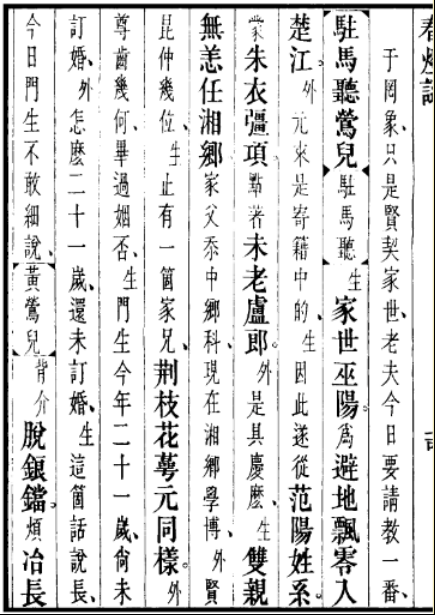 于罔象、只是賢契家世、老夫今日要請教一番、
【駐馬聽鶯兒】【駐馬聽】生家世巫陽。爲避地飄零入
楚江。外元來是寄籍中的、生因此遂從范陽姓系。
蒙朱衣彊項。點著未老盧郎。外是具慶麽、生雙親
無恙任湘鄉家父忝中鄉科、現在湘鄉學博、外賢
昆仲幾位、生止有一箇家兄、荆枝花萼元同樣。外
尊齒幾何、畢過姻否、生門生今年二十一歲、尙未
訂婚、外怎麽二十一歲、還未訂婚、生這箇話說長、
今日門生不敢細說、【黃鶯兒】背介脫鋃鐺。煩冶長